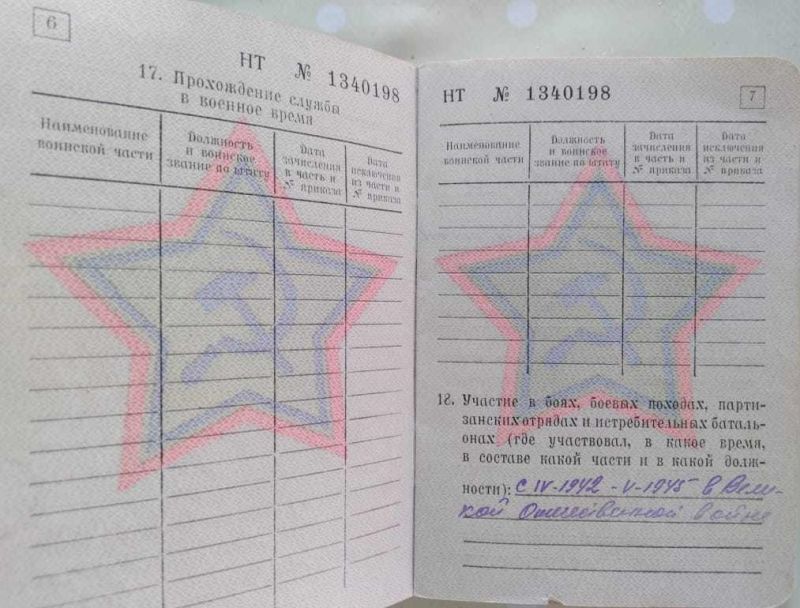 6
НТ № 1340198
17. Прохождение службы
в военное время
Наименование
воинской части
Должность
и воинское
звание по штату
Дата
зачисления
в часть и
№ приказа
Дата
исключения
из части и
№ приказа
НТ № 1340198
7
Наименование
воинской части
Должность
и воинское
звание по штату
Дата
зачисления
в часть и
№ приказа
Дата
исключения
из части и
№ приказа
18. Участие в боях, боевых походах, парти-
занских отрядах и истребительных баталь-
онах (где участвовал, в какое время,
в составе какой части и в какой долж-
ности): с IV-1942 - V-1945 в Вели-
кой Отечественной войне